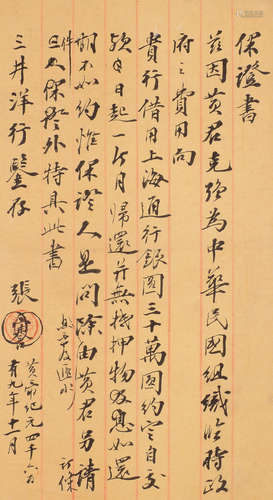 保證書
茲因黃君克強為中華民國組織臨時政
府之費用向
貴行借用上海通行銀圓三十萬圓約定自交
款日起一个月歸還并無抵押物及息如還
期不如約惟保證人是問除由黃君另
訂條
件
保證外特具此書
三井洋行鑒存 張
黃帝紀元四千六百
有九年十一月